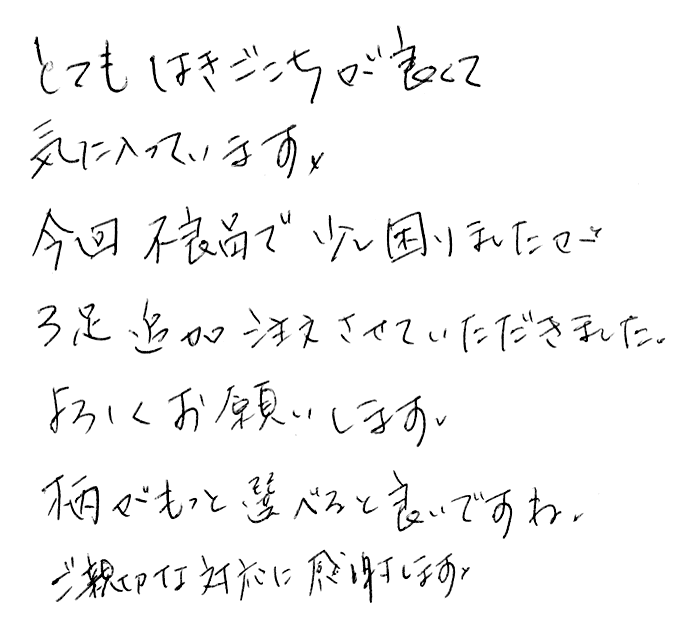 とても はきごこちが良くて
気に入っています。
今回 不良品で 少し困りましたが
3足 追加 注文させていただきました。
よろしくお願いします。
柄がもっと選べると良いですね。
ご親切な対応に感謝します。